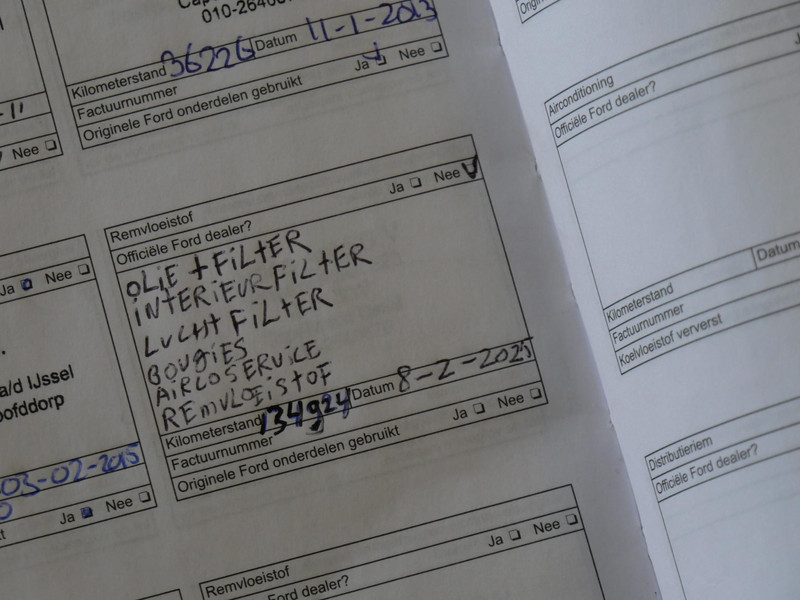 010-2640
Kilometerstand 36226 Datum 11-1-2013
Factuurnummer
Originele Ford onderdelen gebruikt Ja Nee
Nee
Ja Nee
a/d IJssel
oofddorp
03-02-2015
Ja Nee
Remvloeistof
Officiële Ford dealer? Ja Nee V
OLIE + FILTER
INTERIEURFILTER
LUCHT FILTER
BOUGIES
AIRCOSERVICE
REMVLOEISTOF
Kilometerstand 134924 Datum 8-2-2025
Factuurnummer
Originele Ford onderdelen gebruikt Ja Nee
Remvloeistof
Ford dealer? Ja Nee
Airconditioning
Officiële Ford dealer?
Kilometerstand Datum
Factuurnummer
Koelvloeistof ververst
Distributieriem
Officiële Ford dealer?